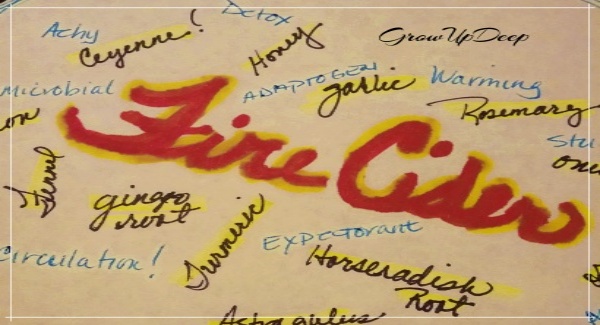 Achy
Ceyenne!
Detox
Honey
GrowUpDeep
Microbial
ADAPTOGEN
garlic
Warming
Rosemary
on
Fire Cider
Fennel
ginger
root
Turmeric
Expectorant
Circulation!
Horseradish
Root